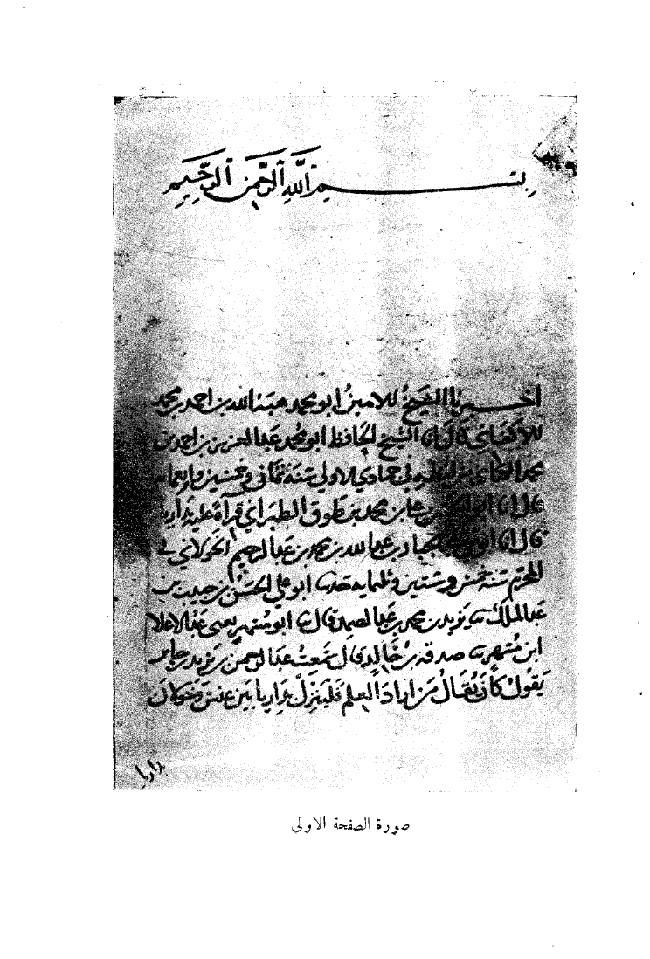 بسم الله الرحمن الرحيم
اخبرنا الشيخ الامين ابو محمد هبة الله بن احمد بن محمد
الاكفاني قال انا الشيخ الحافظ ابو محمد عبد العزيز بن احمد بن
محمد في جمادي الاولى سنة ثمان وخمسين واربعمايه
قال انا بن محمد بن طوق الطبراني قراة عليه بداريا
قال انا عبد الجبار بن عبد الله بن محمد بن عبد الرحيم الخولاني في
المحرم سنة خمس وستين وثلثمايه حدثنا ابو علي الحسن بن حبيب بن
عبد الملك نا يزيد بن محمد بن عبد الصمد قال نا ابو مسهر يعني عبد الاعلا
ابن مسهر نا صدقة بن خالد قال سمعت عبد الرحمن بن يزيد بن جابر
يقول كان يقال من اراد العلم فلينزل بداريا بين عنس وخولان
داريا
صورة الصفحة الاولى